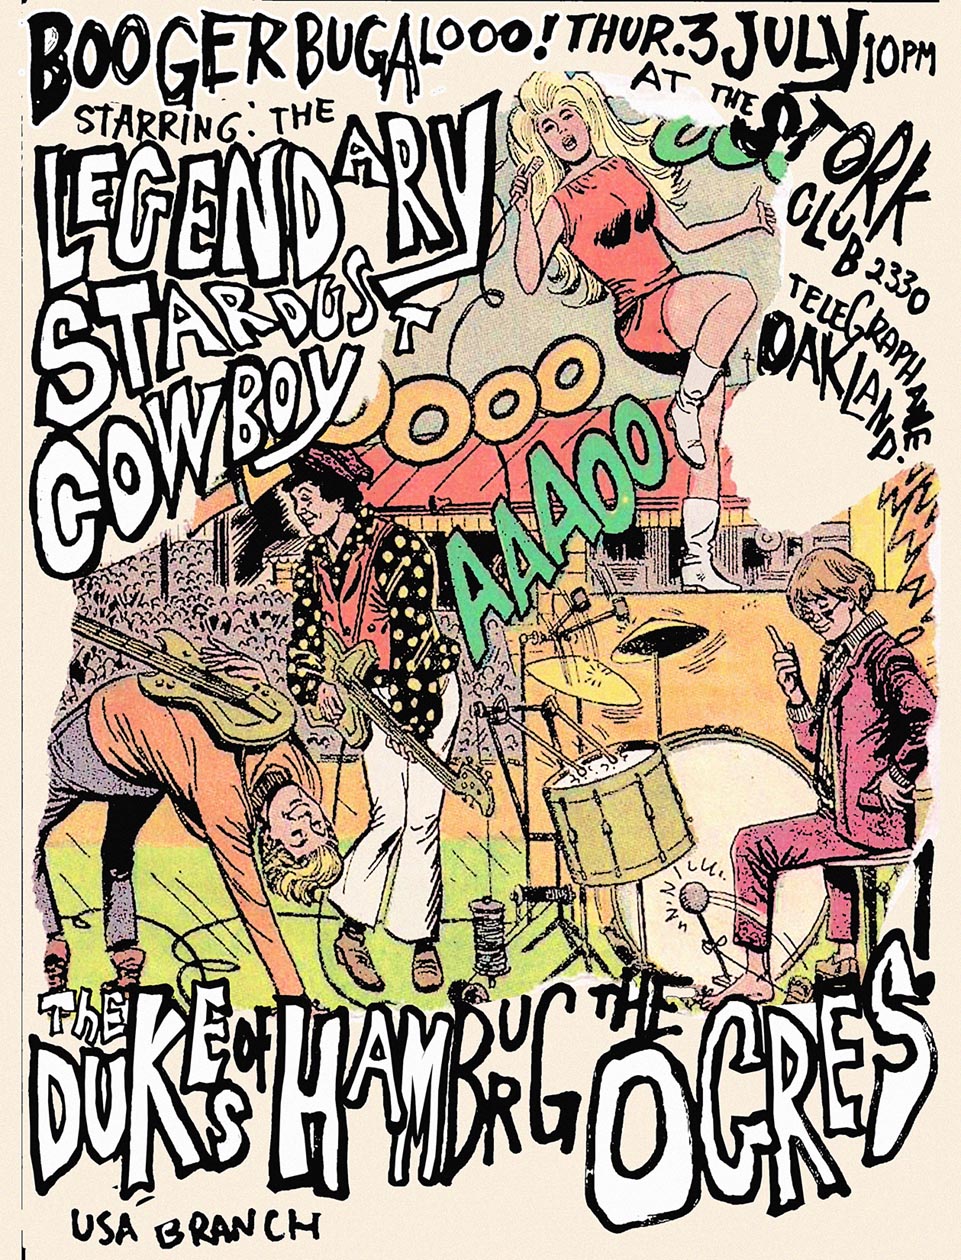 BOOGER BUGALOOO! THUR. 3 JULY 10PM
AT THE
STORK
CLUB 2330
TELEGRAPH AVE.
OAKLAND.
STARRING: THE
LEGENDARY
STARDUST
COWBOY
OOO
OOOO
AAAOO
THE
DUKES OF HAMBURG
THE
OGRES!
USA BRANCH